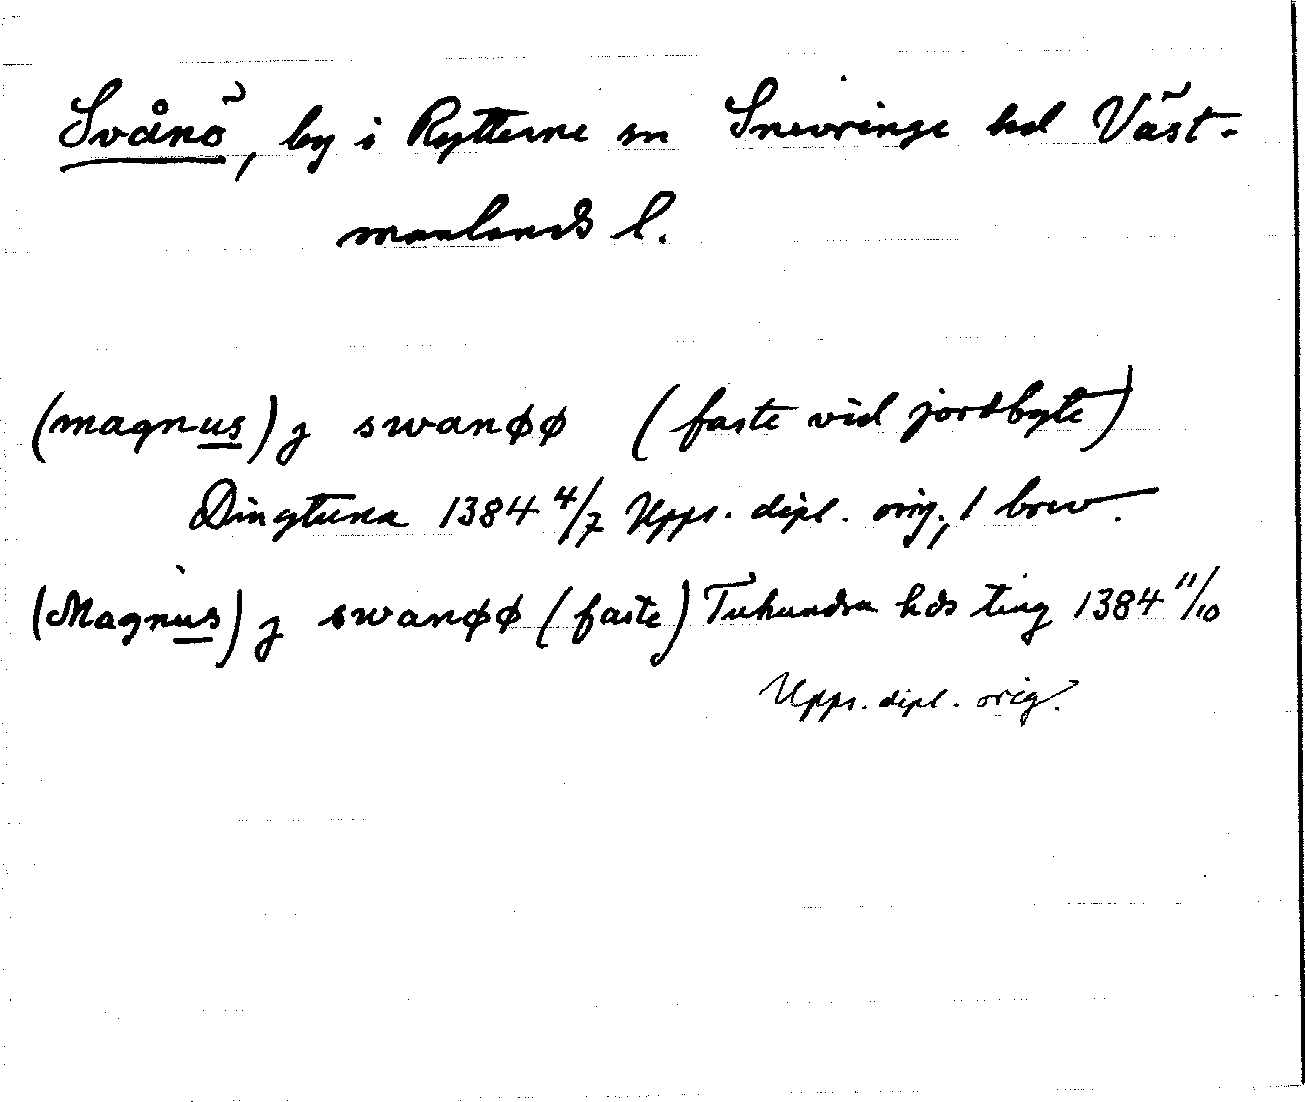 Svånö, by i Rytterne sn Snevringe hd Väst-
manlands l.
(magnus) j swanøø (faste vid jordbyte)
Dingtuna 1384 4/7 Upps. dipl. orig., 1 brev.
(Magnus) j swanøø (faste) Tuhundra hds ting 1384 11/10
Upps. dipl. orig.